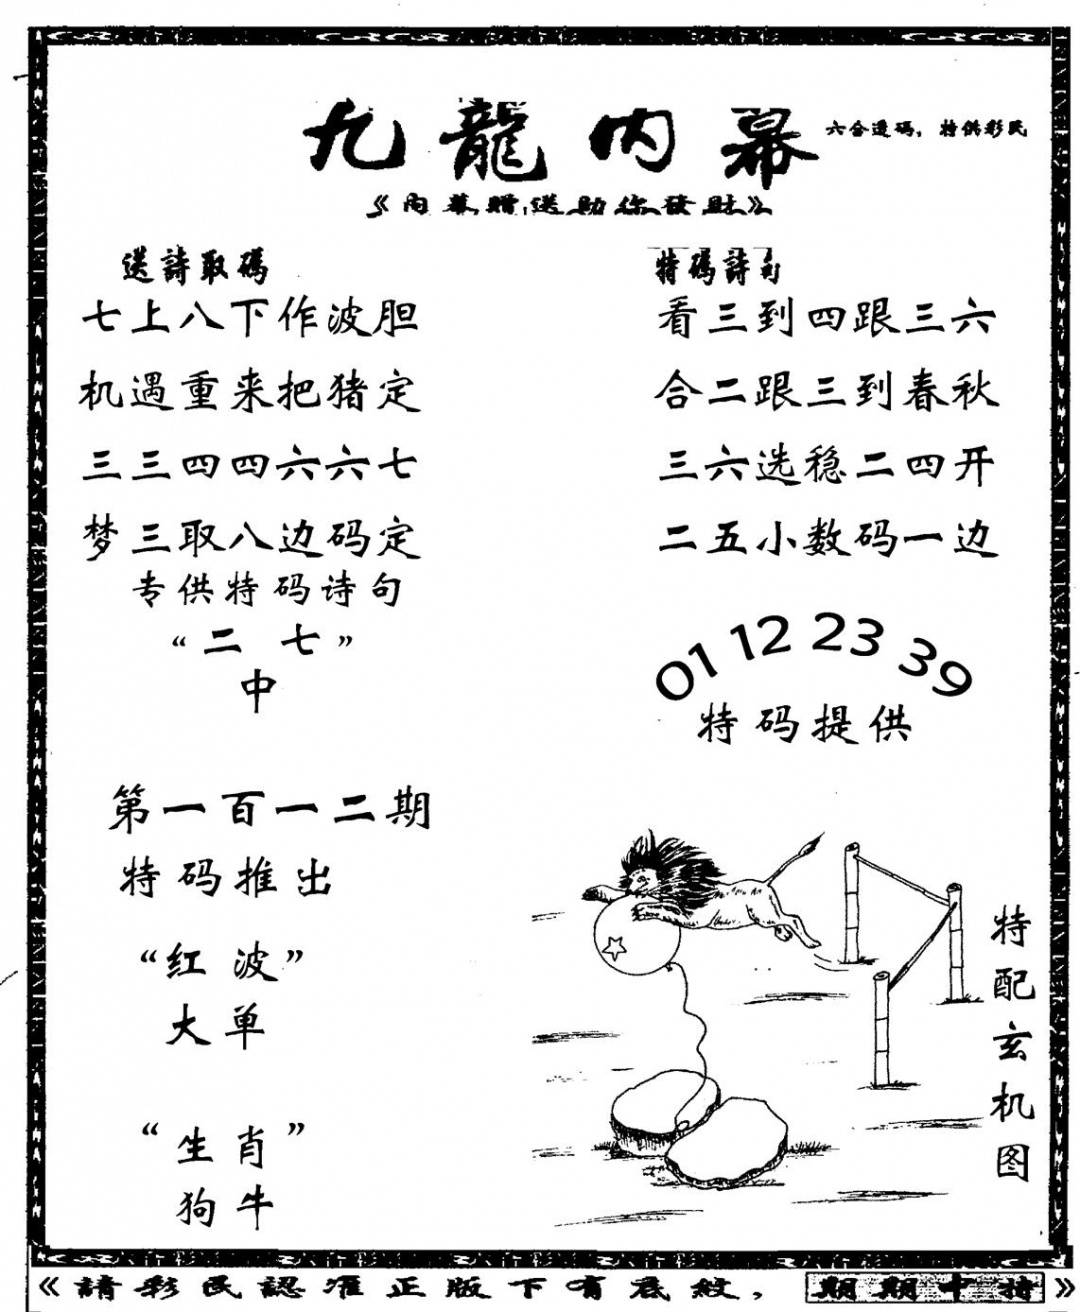 九龍内幕
六合透码，特供彩民
《内幕赠送助你發財》
送詩取碼
七上八下作波胆
机遇重来把猪定
三三四四六六七
梦三取八边码定
专供特码诗句
“二七”
中
特碼詩句
看三到四跟三六
合二跟三到春秋
三六选稳二四开
二五小数码一边
01 12 23 39
特码提供
第一百一二期
特码推出
“红波”
大单
“生肖”
狗牛
特配玄机图
《請彩民認准正版下有底紋，期期中特》